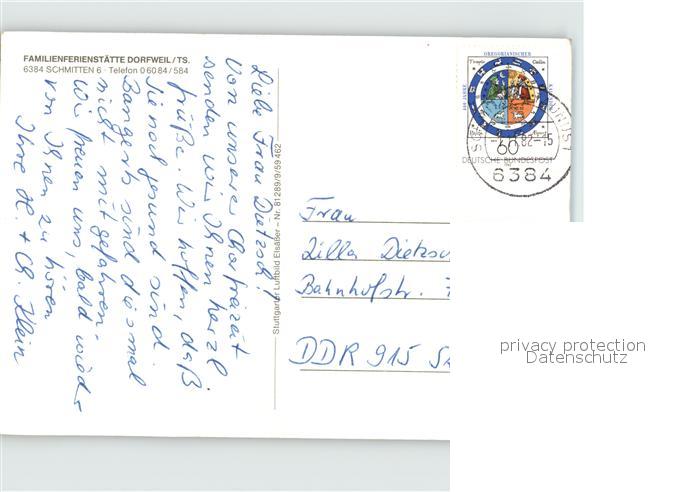 FAMILIENFERIENSTÄTTE DORFWEIL/TS.
6384 SCHMITTEN 6 · Telefon 0 60 84 / 584
Liebe Frau Dietzsch!
Von unserer Chorfreizeit
senden wir Ihnen herzl.
Grüße. Wir hoffen, daß
Sie noch gesund sind.
Bangerts sind diesmal
nicht mitgefahren.
Wir freuen uns, bald wieder
von Ihnen zu hören
Ihre H. + Ch. Klein
Stuttgarter Luftbild Elsäßer – Nr. 81289/9/59 462
GREGORIANISCHER
DEUTSCHE BUNDESPOST
60
82
6384
Frau
Zilla Dietzsc
Bahnhofstr.
DDR 915
privacy protection
Datenschutz